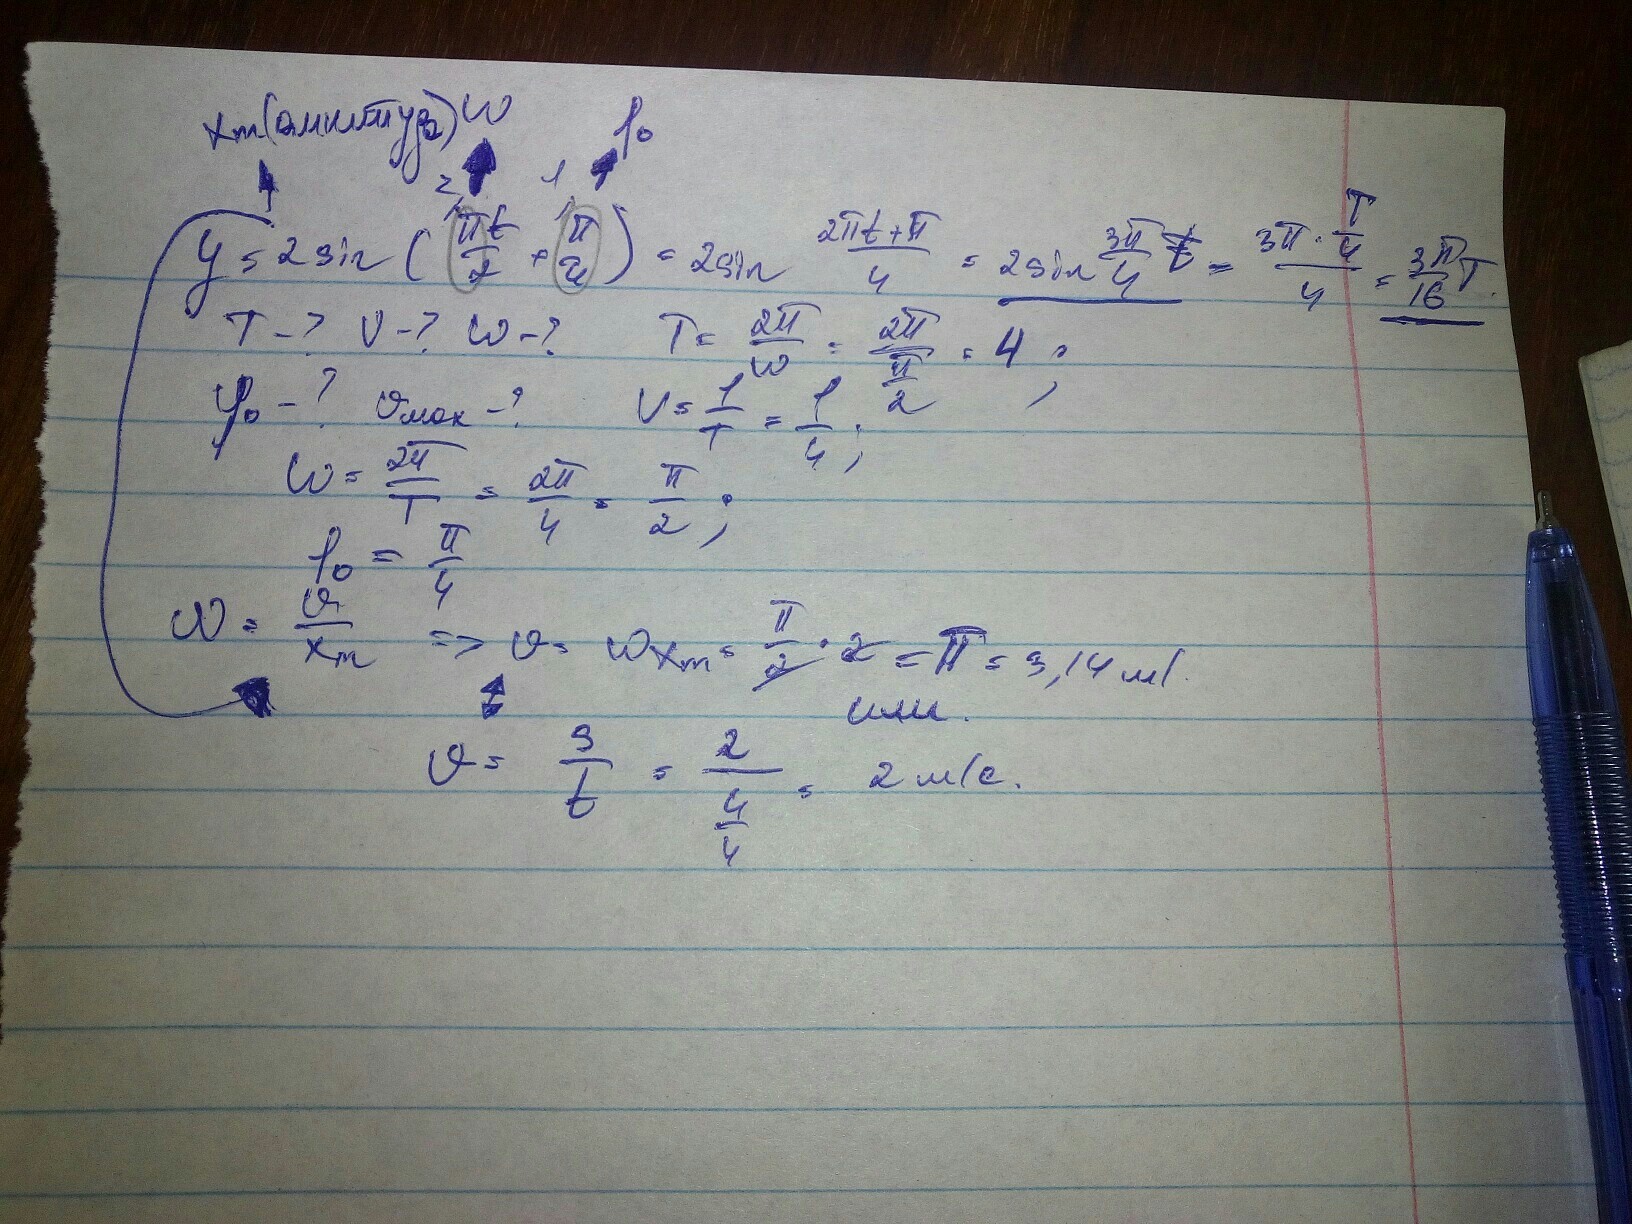 xm(амплитуда) ω φ₀
2 1
y = 2sin(πt/2 + π/4) = 2sin (2πt+π)/4 = 2sin 3π/4 t = (3π · T/4)/4 = 3π/16 T.
T-? ν-? ω-? T = 2π/ω = 2π/(π/2) = 4;
φ₀-? υмах-? ν = 1/T = 1/4;
ω = 2π/T = 2π/4 = π/2;
φ₀ = π/4
ω = υ/xm => υ = ωxm = π/2 · 2 = π = 3,14 м/
или.
υ = S/t = 2/(4/4) = 2 м/с.